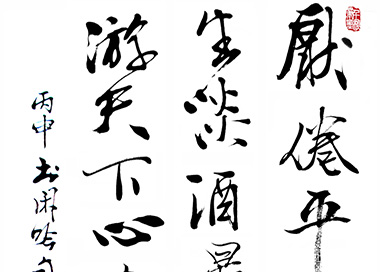 厭倦平
生淡酒
游天下心
丙申书闲吟